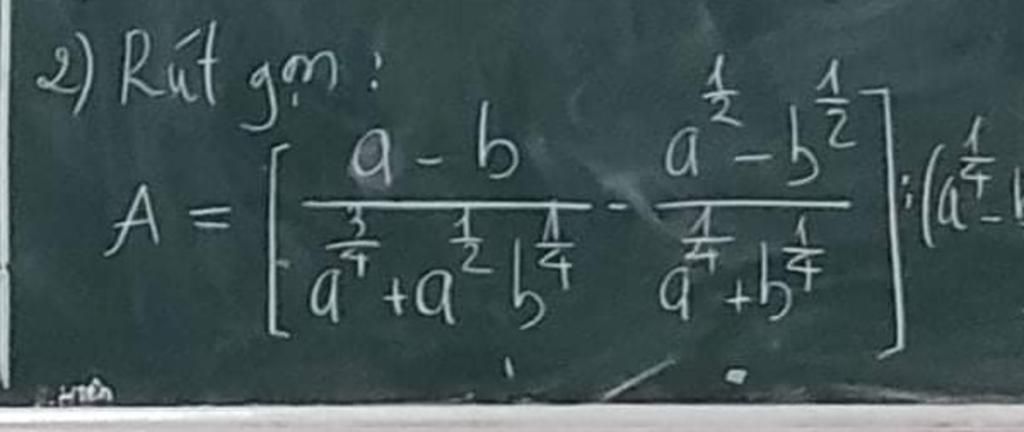 2) Rút gọn :
A = [ (a - b) / (a^{3/4} + a^{1/2} b^{1/4}) - (a^{1/2} - b^{1/2}) / (a^{1/4} + b^{1/4}) ] : (a^{1/4} -